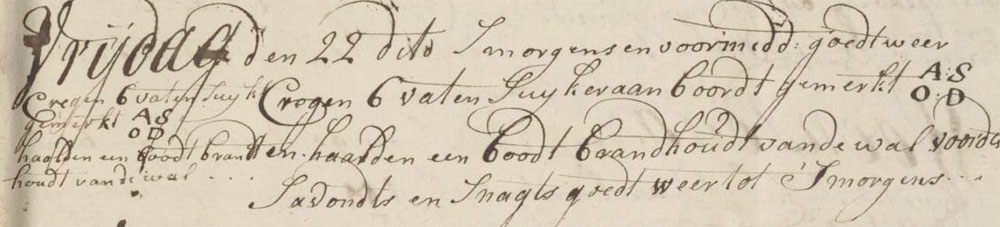 Vrijdag den 22 dito Smorgens en voormidd: goedt weer
Cregen 6 vaten Suyker aan boordt gemerkt A:S
O:D
en haalden een boodt brandhoudt vande wal voords
Savondts en Snagts goedt weer tot Smorgens...
Cregen 6 vaten Suyk
gemerkt AS
OD
haalden een boodt brandt
houdt vande wal....